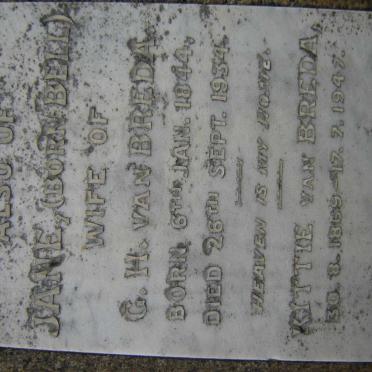 ALSO OF
JANE, (BORN BELL)
WIFE OF
G. H. VAN BREDA,
BORN 6TH JAN. 1844,
DIED 26TH SEPT. 1934.
HEAVEN IS MY HOME.
KITTIE VAN BREDA,
30.8.1869–17.7.1947.